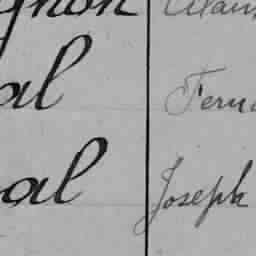 gnon
al Fern
al Joseph